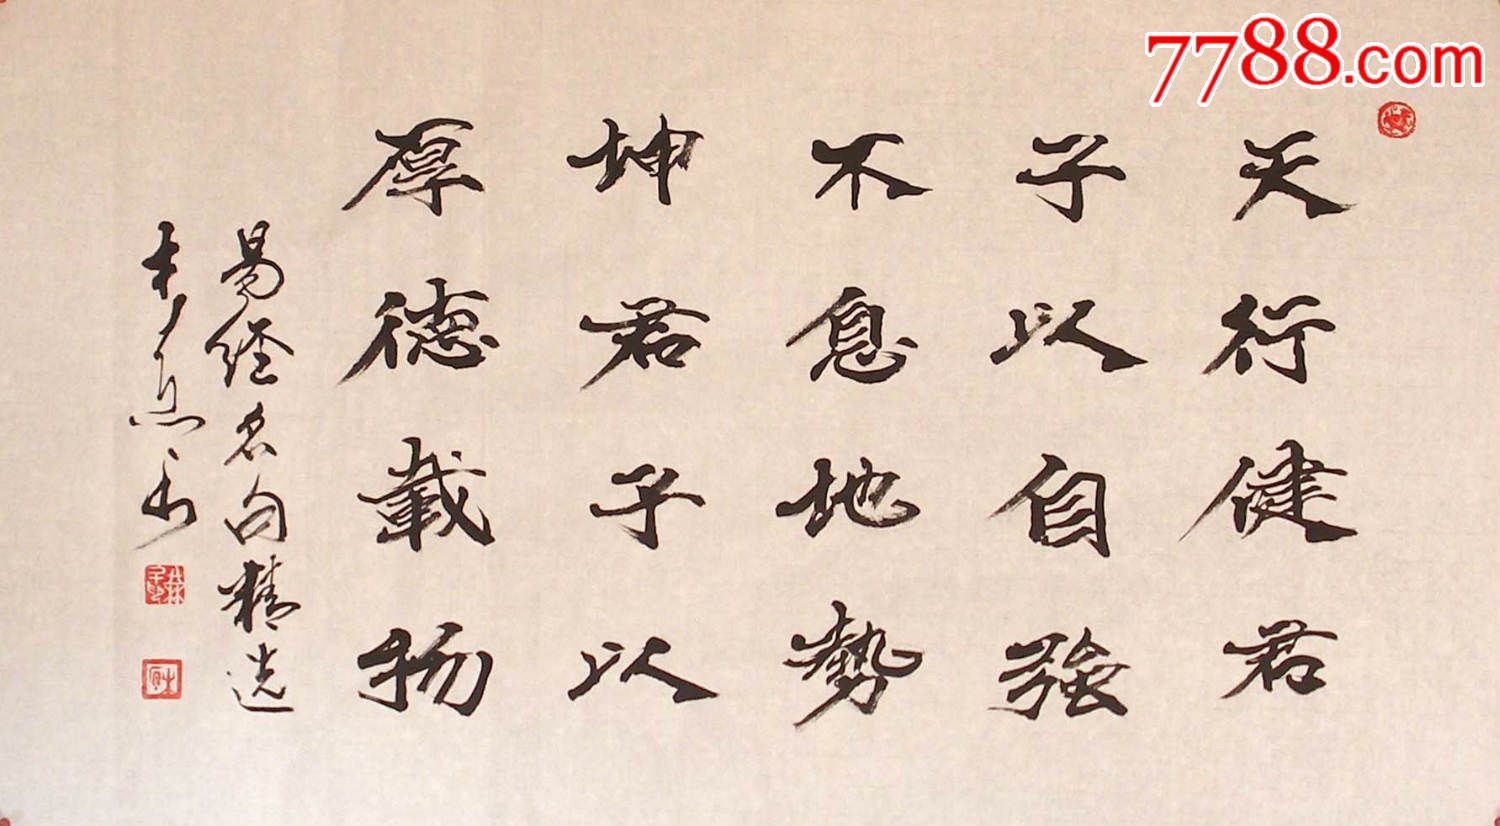 7788.com
天行健君
子以自強
不息地勢
坤君子以
厚德載物
易经名句精选